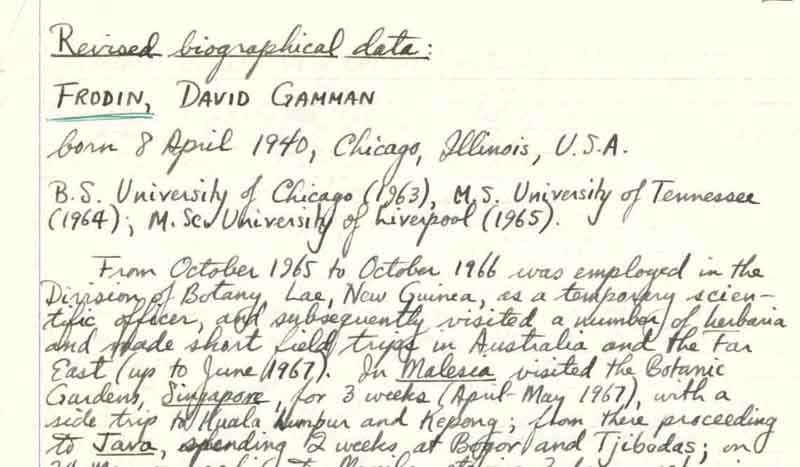 Revised biographical data:
FRODIN, DAVID GAMMAN
born 8 April 1940, Chicago, Illinois, U.S.A.
B.S. University of Chicago (1963), M.S. University of Tennessee
(1964); M.Sc. University of Liverpool (1965).
From October 1965 to October 1966 was employed in the
Division of Botany, Lae, New Guinea, as a temporary scien-
tific officer, and subsequently visited a number of herbaria
and made short field trips in Australia and the Far
East (up to June 1967). In Malesia visited the Botanic
Gardens, Singapore, for 3 weeks (April-May 1967), with a
side trip to Kuala Lumpur and Kepong; from there proceeding
to Java, spending 2 weeks at Bogor and Tjibodas; on